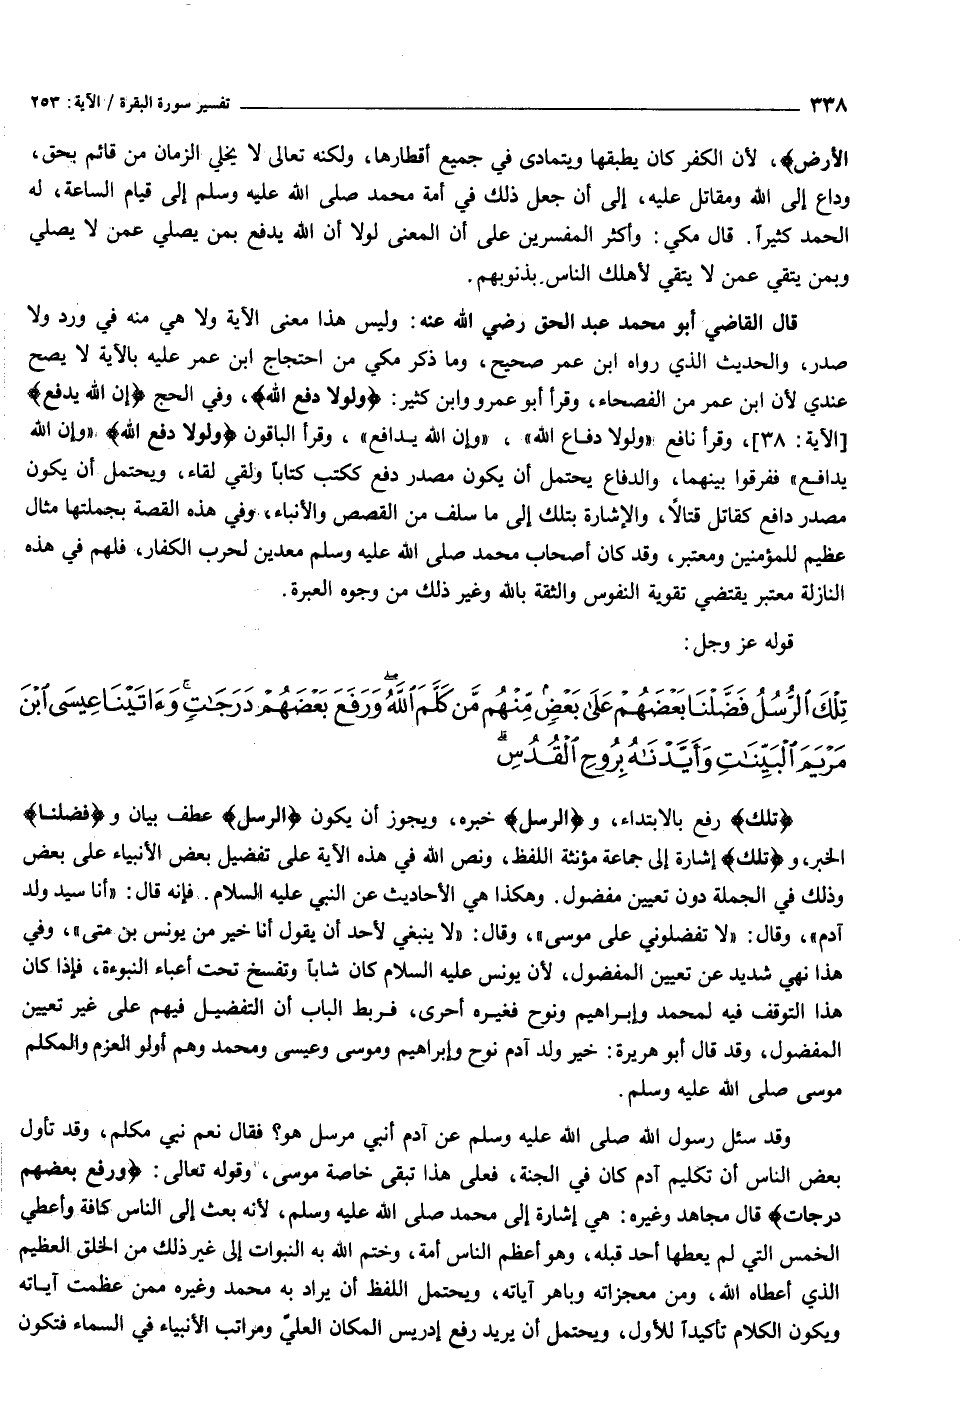 ٣٣٨ تفسير سورة البقرة / الآية: ٢٥٣
الأرض﴾، لأن الكفر كان يطبقها ويتمادى في جميع أقطارها، ولكنه تعالى لا يخلي الزمان من قائم بحق،
وداع إلى الله ومقاتل عليه، إلى أن جعل ذلك في أمة محمد صلى الله عليه وسلم إلى قيام الساعة، له
الحمد كثيراً. قال مكي: وأكثر المفسرين على أن المعنى لولا أن الله يدفع بمن يصلي عمن لا يصلي
وبمن يتقي عمن لا يتقي لأهلك الناس بذنوبهم.
قال القاضي أبو محمد عبد الحق رضي الله عنه: وليس هذا معنى الآية ولا هي منه في ورد ولا
صدر، والحديث الذي رواه ابن عمر صحيح، وما ذكر مكي من احتجاج ابن عمر عليه بالآية لا يصح
عندي لأن ابن عمر من الفصحاء، وقرأ أبو عمرو وابن كثير: ﴿ولولا دفع الله﴾، وفي الحج ﴿إن الله يدفع﴾
[الآية: ٣٨]، وقرأ نافع «ولولا دفاع الله» ، «وإن الله يدافع» ، وقرأ الباقون ﴿ولولا دفع الله﴾ «وإن الله
يدافع» ففرقوا بينهما، والدفاع يحتمل أن يكون مصدر دفع ككتب كتاباً ولقي لقاء، ويحتمل أن يكون
مصدر دافع كقاتل قتالاً، والإشارة بتلك إلى ما سلف من القصص والأنباء، وفي هذه القصة بجملتها مثال
عظيم للمؤمنين ومعتبر، وقد كان أصحاب محمد صلى الله عليه وسلم معدين لحرب الكفار، فلهم في هذه
النازلة معتبر يقتضي تقوية النفوس والثقة بالله وغير ذلك من وجوه العبرة.
قوله عز وجل:
تِلْكَ ٱلرُّسُلُ فَضَّلْنَا بَعْضَهُمْ عَلَىٰ بَعْضٍ مِّنْهُم مَّن كَلَّمَ ٱللَّهُ وَرَفَعَ بَعْضَهُمْ دَرَجَٰتٍ وَءَاتَيْنَا عِيسَى ٱبْنَ
مَرْيَمَ ٱلْبَيِّنَٰتِ وَأَيَّدْنَٰهُ بِرُوحِ ٱلْقُدُسِ
﴿تلك﴾ رفع بالابتداء، و﴿الرسل﴾ خبره، ويجوز أن يكون ﴿الرسل﴾ عطف بيان و﴿فضلنا﴾
الخبر، و﴿تلك﴾ إشارة إلى جماعة مؤنثة اللفظ، ونص الله في هذه الآية على تفضيل بعض الأنبياء على بعض
وذلك في الجملة دون تعيين مفضول. وهكذا هي الأحاديث عن النبي عليه السلام. فإنه قال: «أنا سيد ولد
آدم»، وقال: «لا تفضلوني على موسى»، وقال: «لا ينبغي لأحد أن يقول أنا خير من يونس بن متى»، وفي
هذا نهي شديد عن تعيين المفضول، لأن يونس عليه السلام كان شاباً وتفسخ تحت أعباء النبوءة، فإذا كان
هذا التوقف فيه لمحمد وإبراهيم ونوح فغيره أحرى، فربط الباب أن التفضيل فيهم على غير تعيين
المفضول، وقد قال أبو هريرة: خير ولد آدم نوح وإبراهيم وموسى وعيسى ومحمد وهم أولو العزم والمكلم
موسى صلى الله عليه وسلم.
وقد سئل رسول الله صلى الله عليه وسلم عن آدم أنبي مرسل هو؟ فقال نعم نبي مكلم، وقد تأول
بعض الناس أن تكليم آدم كان في الجنة، فعلى هذا تبقى خاصة موسى، وقوله تعالى: ﴿ورفع بعضهم
درجات﴾ قال مجاهد وغيره: هي إشارة إلى محمد صلى الله عليه وسلم، لأنه بعث إلى الناس كافة وأعطي
الخمس التي لم يعطها أحد قبله، وهو أعظم الناس أمة، وختم الله به النبوات إلى غير ذلك من الخلق العظيم
الذي أعطاه الله، ومن معجزاته وباهر آياته، ويحتمل اللفظ أن يراد به محمد وغيره ممن عظمت آياته
ويكون الكلام تأكيداً للأول، ويحتمل أن يريد رفع إدريس المكان العليّ ومراتب الأنبياء في السماء فتكون